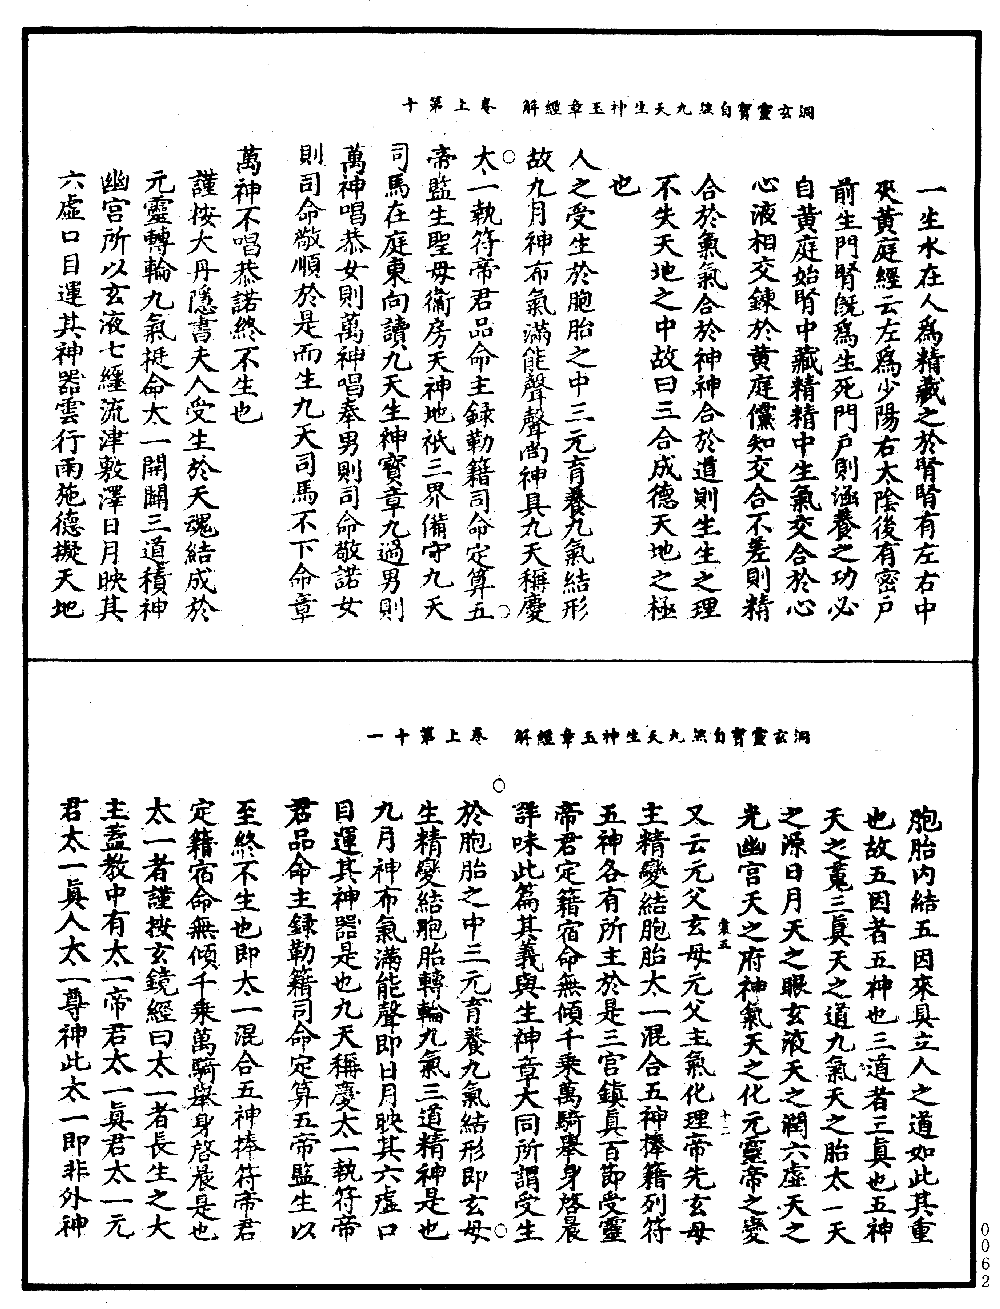 洞玄靈寶自然九天生神玉章經解　卷上第十
一生水在人爲精藏之於腎腎有左右中
夾黃庭經云左爲少陽右太陰後有密戶
前生門腎旣爲生死門戶則涵養之功必
自黃庭始腎中藏精精中生氣交合於心
心液相交鍊於黃庭儻知交合不差則精
合於氣氣合於神神合於道則生生之理
不失天地之中故曰三合成德天地之極
也
人之受生於胞胎之中三元育養九氣結形
故九月神布氣滿能聲聲尚神具九天稱慶
太一執符帝君品命主錄勒籍司命定算五
帝監生聖母衛房天神地祇三界備守九天
司馬在庭東向讀九天生神寶章九過男則
萬神唱恭女則萬神唱奉男則司命敬諾女
則司命敬順於是而生九天司馬不下命章
萬神不唱恭諾終不生也
謹按大丹隱書夫人受生於天魂結成於
元靈轉輪九氣挺命太一開關三道積神
幽宮所以玄液七經流津敷澤日月映其
六虛口目運其神器雲行雨施德擬天地
洞玄靈寶自然九天生神玉章經解　卷上第十一
胞胎內結五因來具立人之道如此其重
也故五因者五神也三道者三眞也五神
天之䰟三眞天之道九氣天之胎太一天
之源日月天之眼玄液天之潤六虛天之
光幽宮天之府神氣天之化元靈帝之變
又云元父玄母元父主氣化理帝先玄母
主精變結胞胎太一混合五神捧籍列符
五神各有所主於是三宮鎮真百節受靈
帝君定籍宿命無傾千乘萬騎舉身啓晨
詳味此篇其義與生神章大同所謂受生
於胞胎之中三元育養九氣結形即玄母
生精變結胞胎轉輪九氣三道精神是也
九月神布氣滿能聲即日月映其六虛口
目運其神器是也九天稱慶太一執符帝
君品命主錄勒籍司命定算五帝監生以
至終不生也即太一混合五神捧符帝君
定籍宿命無傾千乘萬騎舉身啓晨是也
太一者謹按玄鏡經曰太一者長生之大
主蓋教中有太一帝君太一眞君太一元
君太一眞人太一尊神此太一即非外神
十二
0062